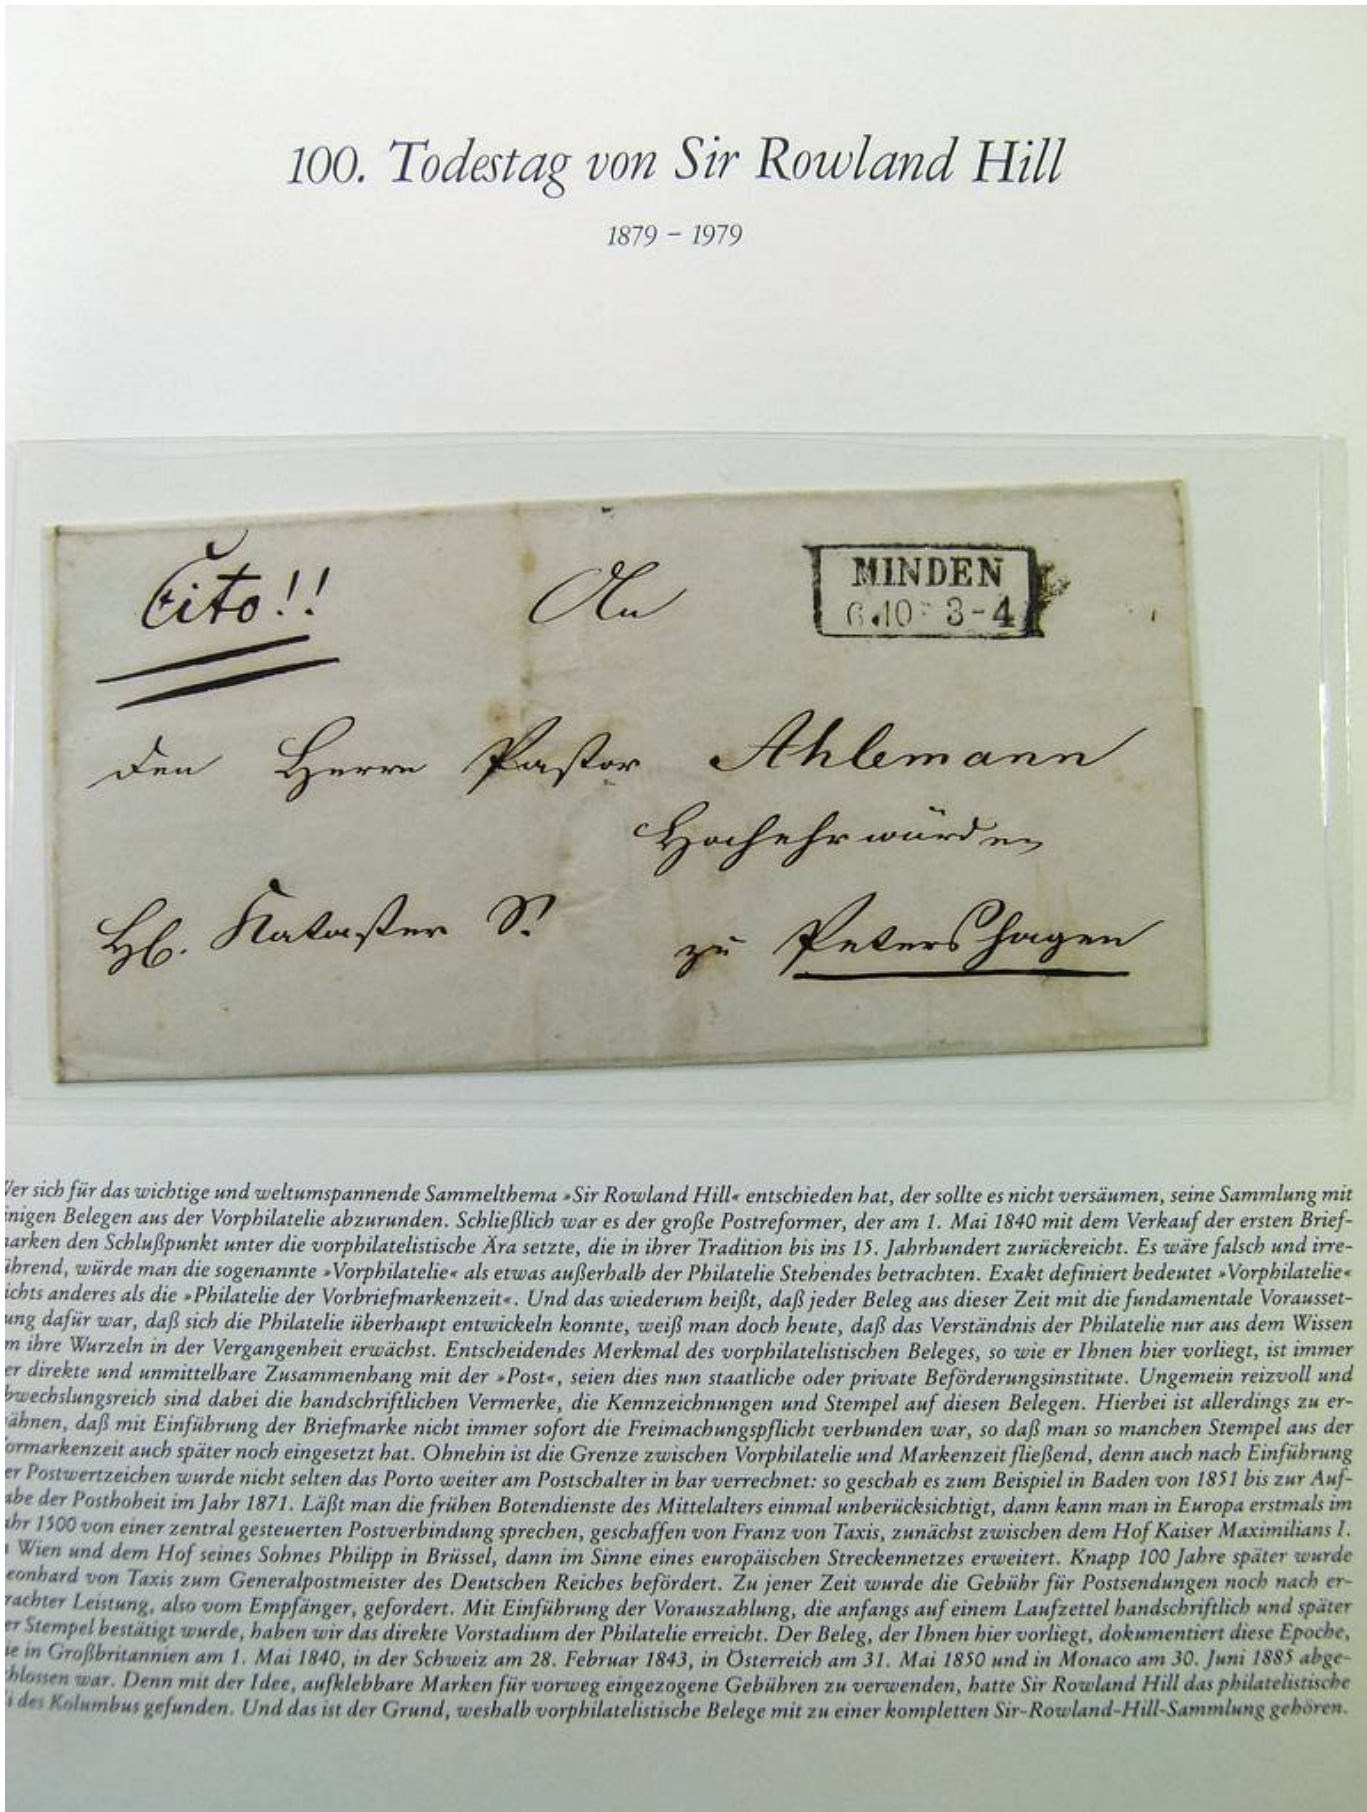 100. Todestag von Sir Rowland Hill
1879 – 1979
Cito!!
An
MINDEN
6.10 3-4
den Herrn Pastor Ahlemann
Hochehrwürden
Kataster
zu Petershagen
Wer sich für das wichtige und weltumspannende Sammelthema »Sir Rowland Hill« entschieden hat, der sollte es nicht versäumen, seine Sammlung mit
inigen Belegen aus der Vorphilatelie abzurunden. Schließlich war es der große Postreformer, der am 1. Mai 1840 mit dem Verkauf der ersten Brief-
arken den Schlußpunkt unter die vorphilatelistische Ära setzte, die in ihrer Tradition bis ins 15. Jahrhundert zurückreicht. Es wäre falsch und irre-
ührend, würde man die sogenannte »Vorphilatelie« als etwas außerhalb der Philatelie Stehendes betrachten. Exakt definiert bedeutet »Vorphilatelie«
ichts anderes als die »Philatelie der Vorbriefmarkenzeit«. Und das wiederum heißt, daß jeder Beleg aus dieser Zeit mit die fundamentale Vorausset-
ung dafür war, daß sich die Philatelie überhaupt entwickeln konnte, weiß man doch heute, daß das Verständnis der Philatelie nur aus dem Wissen
m ihre Wurzeln in der Vergangenheit erwächst. Entscheidendes Merkmal des vorphilatelistischen Beleges, so wie er Ihnen hier vorliegt, ist immer
er direkte und unmittelbare Zusammenhang mit der »Post«, seien dies nun staatliche oder private Beförderungsinstitute. Ungemein reizvoll und
bwechslungsreich sind dabei die handschriftlichen Vermerke, die Kennzeichnungen und Stempel auf diesen Belegen. Hierbei ist allerdings zu er-
ähnen, daß mit Einführung der Briefmarke nicht immer sofort die Freimachungspflicht verbunden war, so daß man so manchen Stempel aus der
ormarkenzeit auch später noch eingesetzt hat. Ohnehin ist die Grenze zwischen Vorphilatelie und Markenzeit fließend, denn auch nach Einführung
er Postwertzeichen wurde nicht selten das Porto weiter am Postschalter in bar verrechnet: so geschah es zum Beispiel in Baden von 1851 bis zur Auf-
abe der Posthoheit im Jahr 1871. Läßt man die frühen Botendienste des Mittelalters einmal unberücksichtigt, dann kann man in Europa erstmals im
ahr 1500 von einer zentral gesteuerten Postverbindung sprechen, geschaffen von Franz von Taxis, zunächst zwischen dem Hof Kaiser Maximilians I.
Wien und dem Hof seines Sohnes Philipp in Brüssel, dann im Sinne eines europäischen Streckennetzes erweitert. Knapp 100 Jahre später wurde
eonhard von Taxis zum Generalpostmeister des Deutschen Reiches befördert. Zu jener Zeit wurde die Gebühr für Postsendungen noch nach er-
rachter Leistung, also vom Empfänger, gefordert. Mit Einführung der Vorauszahlung, die anfangs auf einem Laufzettel handschriftlich und später
er Stempel bestätigt wurde, haben wir das direkte Vorstadium der Philatelie erreicht. Der Beleg, der Ihnen hier vorliegt, dokumentiert diese Epoche,
ie in Großbritannien am 1. Mai 1840, in der Schweiz am 28. Februar 1843, in Österreich am 31. Mai 1850 und in Monaco am 30. Juni 1885 abge-
chlossen war. Denn mit der Idee, aufklebbare Marken für vorweg eingezogene Gebühren zu verwenden, hatte Sir Rowland Hill das philatelistische
i des Kolumbus gefunden. Und das ist der Grund, weshalb vorphilatelistische Belege mit zu einer kompletten Sir-Rowland-Hill-Sammlung gehören.